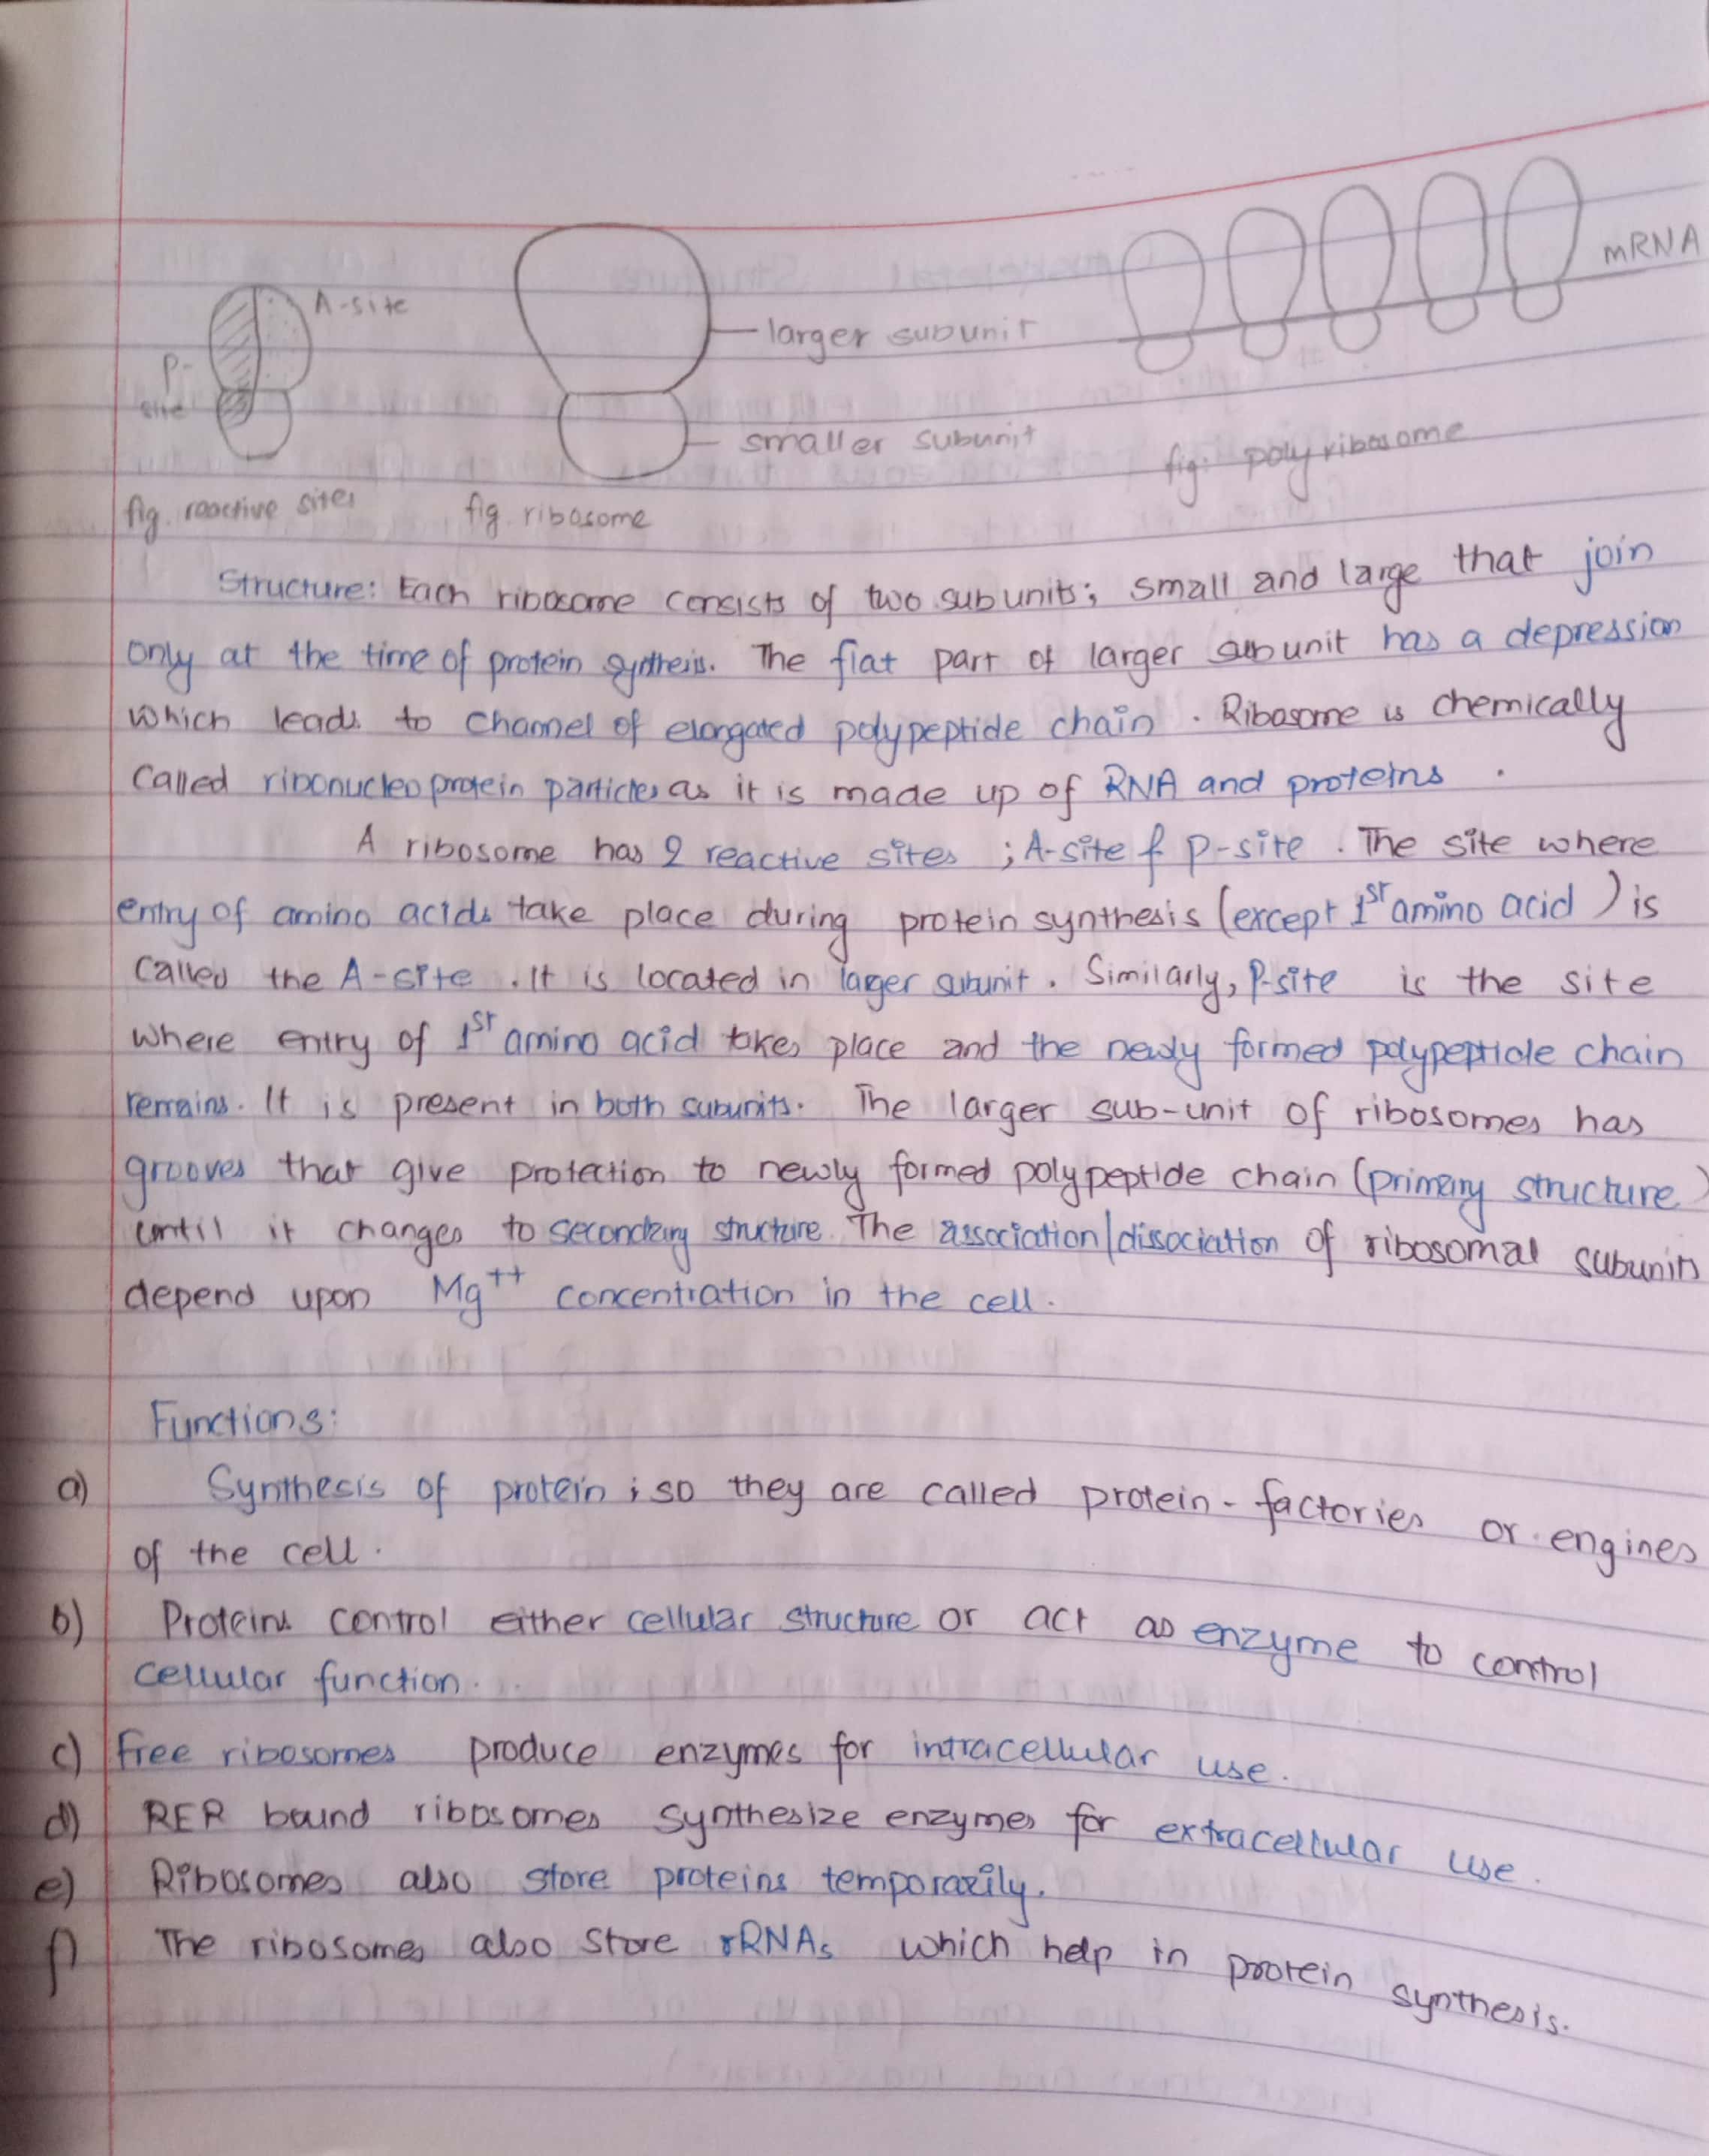 A-site
P-
site
fig. reactive sites
larger subunit
smaller subunit
fig. ribosome
mRNA
fig: polyribosome
Structure: Each ribosome consists of two subunits; small and large that join
only at the time of protein sythesis. The flat part of larger subunit has a depression
which leads to channel of elongated polypeptide chain. Ribosome is chemically
called ribonucleoprotein particles as it is made up of RNA and proteins.
A ribosome has 2 reactive sites ; A-site & P-site. The site where
entry of amino acids take place during protein synthesis (except 1st amino acid) is
called the A-site. It is located in lager subunit. Similarly, P-site is the site
where entry of 1st amino acid takes place and the newly formed polypeptide chain
remains. It is present in both subunits. The larger sub-unit of ribosomes has
grooves that give protection to newly formed polypeptide chain (primary structure)
until it changes to secondary structure. The association/dissociation of ribosomal subunits
depend upon Mg++ concentration in the cell.
Functions:
a) Synthesis of protein ; so they are called protein-factories or engines
of the cell.
b) Proteins control either cellular structure or act as enzyme to control
cellular function.
c) Free ribosomes produce enzymes for intracellular use.
d) RER bound ribosomes synthesize enzymes for extracellular use.
e) Ribosomes also store proteins temporarily.
f) The ribosomes also store rRNAs which help in protein synthesis.